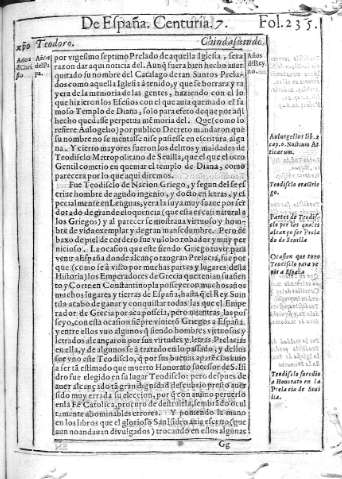 De España. Centuria. 7. Fol. 235.
xpo Teodoro. Caindasuindo.
por vigesimo septimo Prelado de aquella Iglesia, sera
razon dar aqui noticia del. Aunq fuera bien hecho auer
quitado su nombre del Catalago de tan Santos Prela-
dos como aquella Iglesia à tenido, y que se borrara y ra-
yera de la memoria de las gentes, haziendo con el lo
que hizieron los Efesios con el que auia quemado el fa
moso Templo de Diana, solo para efeto de que por aql
hecho quedasse perpetua memoria del. Que (como lo
refiere Aulogelio) por publico Decreto mandaron que
su nombre no se mentasse ni se pusiesse en escritura algu
na. Y cierto mayores fueron los delitos y maldades de
Teodisclo Metropolitano de Seuilla, que el que el otro
Gentil cometio en quemar el templo de Diana, como
parecera por lo que aqui diremos.
Fue Teodisclo de Nacion Griego, y segun del se es-
criue hombre de agudo ingenio, y docto en letras, y es
pecialmente en lenguas,
dotado de grande eloquencia (que esta era casi natural a los
Griegos) y al parecer se mostraua virtuoso y hom-
bre de vida exemplar y de gran mansedumbre. Pero de
baxo de piel de cordero fue vn lobo robador y muy per
nicioso. La ocasion que este siendo Griego tuuo para
venir a España donde alcanço tan gran Prelacia, fue por
que (como se à visto por muchas partes y lugares desta
Historia) los Emperadores de Grecia que tenian su assien
to y Corte en Constantinopla posseyeron muchos años
muchos lugares y tierras de España, hasta q el Rey Suin
tila acabo de ganar y conquistar todas las que el Empe-
rador de Grecia por aca posseia, pero mientras las pos
seyo, con esta ocasion siempre vinieron Griegos a España,
y entre ellos vno algunos q siendo hombres virtuosos y
letrados alcançaron por sus virtudes y letras Prelacias
en ella, y de algunos se à tratado en lo passado, y destos
fue vno este Teodisclo, q por sus buenas aparencias vino
a ser tan estimado que muerto Honorato sucessor de S. Isi
dro fue elegido en su lugar Teodisclo: pero despues de
auer alcançado tan gran dignidad descubrio presto auer
sido muy errada su eleccion, por q con animo peruerso
en la Fè Catolica, procuro de destruirla, sembrando ocul
tamente abominables errores. Y poniendo la mano
en los libros que el glorioso San Isidro auia escrito (que
aun no andauan diuulgados) y trocando en ellos algunas
Gg
Años
Aulogelio lib. 2
cap. 6. Noctium At
ticarum.
Teodisclo natural Grie
go.
Partes de Teodis-
clo por las quales
alcanço ser Prela
do de Seuilla
Ocasion que tuuo
Teodisclo para ve
nir a España
Teodisclo sucedio
a Honorato en la
Prelacia de Seui
lla.